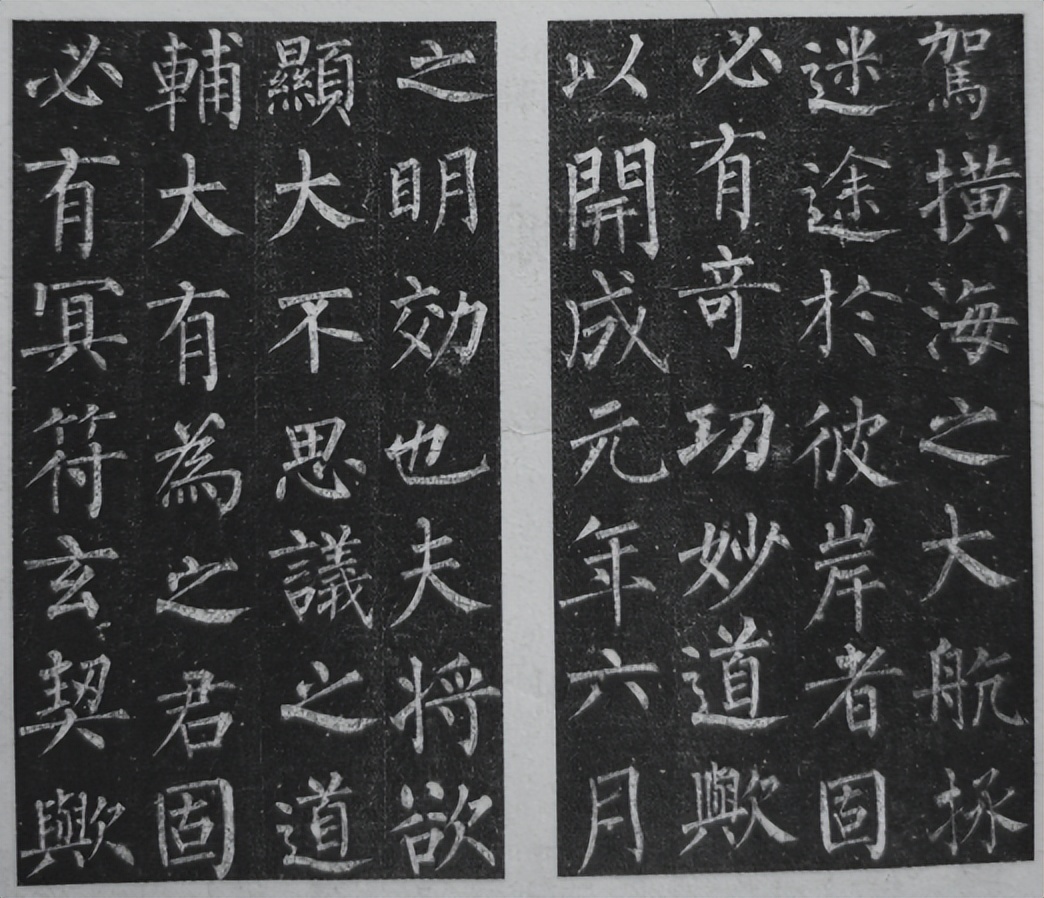 駕横海之大航拯
迷途於彼岸者固
必有奇功妙道歟
以開成元年六月
之明効也夫将欲
顯大不思議之道
輔大有為之君固
必有冥符玄契歟